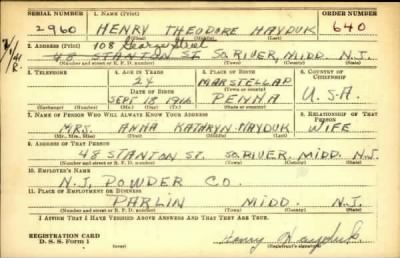 SERIAL NUMBER 1. NAME (Print) ORDER NUMBER
2960 HENRY THEODORE HAYDUK 640
(First) (Middle) (Last)
2. ADDRESS (Print) 108 George Street
48 STANTON ST. SO. RIVER, MIDD. N.J.
(Number and street or R. F. D. number) (Town) (County) (State)
3. TELEPHONE 4. AGE IN YEARS 5. PLACE OF BIRTH 6. COUNTRY OF CITIZENSHIP
24 MARSTELLAR
DATE OF BIRTH (Town or county)
SEPT 18 1916 PENNA U.S.A.
(Exchange) (Number) (Mo.) (Day) (Yr.) (State or country)
7. NAME OF PERSON WHO WILL ALWAYS KNOW YOUR ADDRESS 8. RELATIONSHIP OF THAT PERSON
MRS. ANNA KATHRYN HAYDUK WIFE
(Mr., Mrs., Miss) (First) (Middle) (Last)
9. ADDRESS OF THAT PERSON
48 STANTON ST. SO. RIVER, MIDD. N.J.
(Number and street or R. F. D. number) (Town) (County) (State)
10. EMPLOYER'S NAME
N.J. POWDER CO.
11. PLACE OF EMPLOYMENT OR BUSINESS
PARLIN MIDD. N.J.
(Number and street or R. F. D. number) (Town) (County) (State)
I AFFIRM THAT I HAVE VERIFIED ABOVE ANSWERS AND THAT THEY ARE TRUE.
REGISTRATION CARD
D. S. S. Form 1 Henry Hayduk
(Registrant's signature)